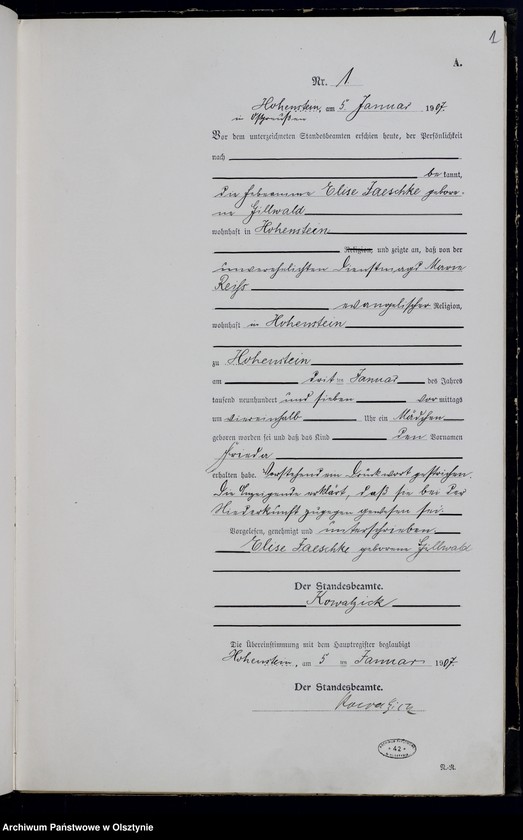 1
A.
Nr. 1
Hohenstein, am 5 Januar 1907.
in Ostpreußen
Vor dem unterzeichneten Standesbeamten erschien heute, der Persönlichkeit
nach
be kannt,
die Hebeamme Elise Jaeschke gebore-
ne Gillwald
wohnhaft in Hohenstein
Religion, und zeigte an, daß von der
unverehelichten Dienstmagd Marie
Reiss
evangelischer Religion,
wohnhaft in Hohenstein
zu Hohenstein
am Januar des Jahres
tausend neunhundert und sieben vor mittags
um viereinhalb Uhr ein Mädchen
geboren worden sei und daß das Kind den Vornamen
Frieda
erhalten habe. Vorstehend ein Druckwort gestrichen.
Die Anzeigende erklärt, daß sie bei der
Niederkunft zugegen gewesen sei.
Vorgelesen, genehmigt und unterschrieben.
Elise Jaeschke geborene Gillwald
Der Standesbeamte.
Kowalzick
Die Übereinstimmung mit dem Hauptregister beglaubigt
Hohenstein, am 5 ten Januar 1907.
Der Standesbeamte.
Kowalzick
42
Archiwum Państwowe w Olsztynie